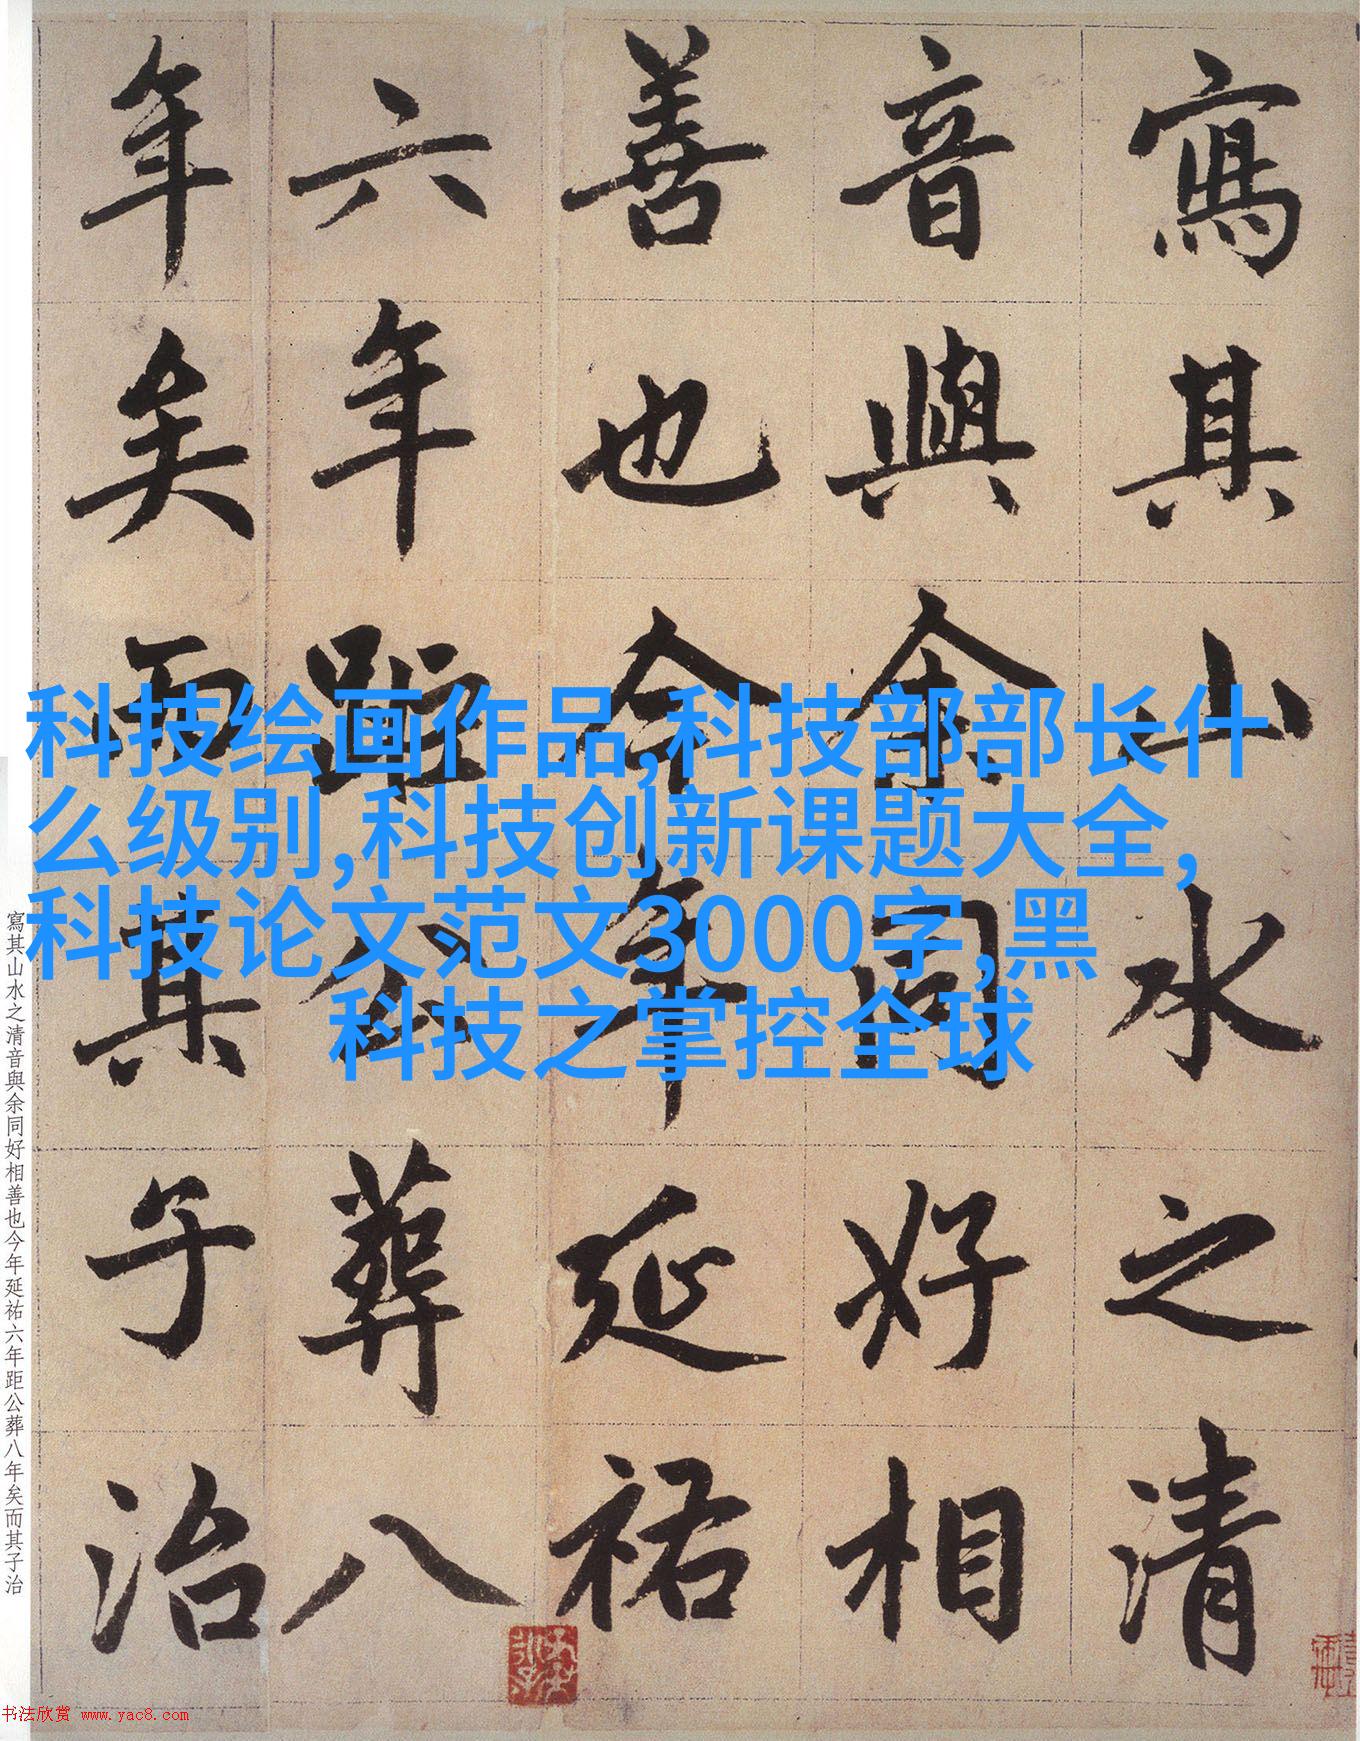 寫其山水之清
音與余同好相
善也今年延祐
六年距公葬八
年矣而其子治
科技绘画作品,科技部部长什
么级别,科技创新课题大全,
科技论文范文3000字,黑
科技之掌控全球
寫其山水之清音與余同好相善也今年延祐六年距公葬八年矣而其子治
书法欣赏 www.yac8.com